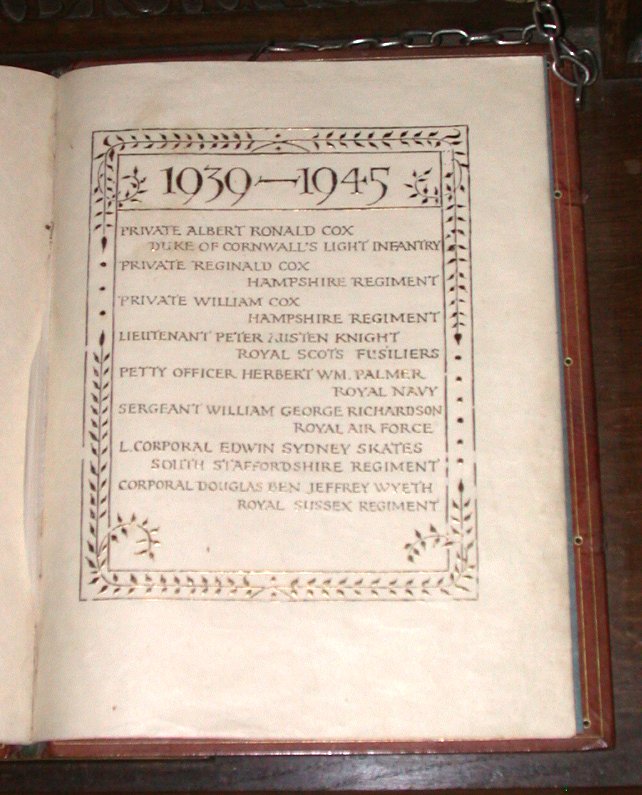 1939–1945
PRIVATE ALBERT RONALD COX
DUKE OF CORNWALL'S LIGHT INFANTRY
PRIVATE REGINALD COX
HAMPSHIRE REGIMENT
PRIVATE WILLIAM COX
HAMPSHIRE REGIMENT
LIEUTENANT PETER KNIGHT
ROYAL SCOTS FUSILIERS
PETTY OFFICER HERBERT WM. PALMER
ROYAL NAVY
SERGEANT WILLIAM GEORGE RICHARDSON
ROYAL AIR FORCE
L. CORPORAL EDWIN SYDNEY SKATES
SOUTH STAFFORDSHIRE REGIMENT
CORPORAL DOUGLAS BEN JEFFREY WYETH
ROYAL SUSSEX REGIMENT